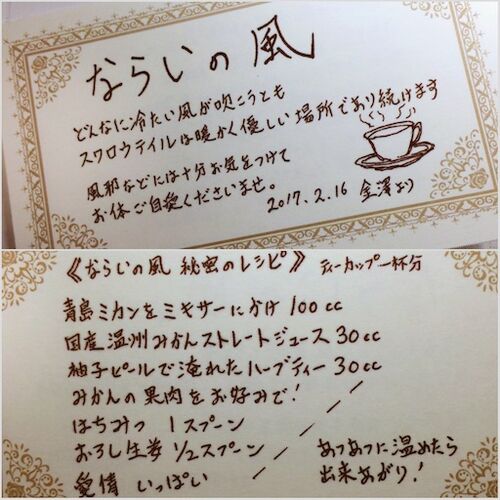 ならいの風
どんなに冷たい風が吹こうとも
スワロウテイルは暖かく優しい場所であり続けます
風邪などには十分お気をつけて
お体ご自愛くださいませ。
2017.2.16 金澤より
《ならいの風 秘密のレシピ》 ティーカップ一杯分
青島ミカンをミキサーにかけ 100cc
国産温州みかんストレートジュース 30cc
柚子ピールで淹れたハーブティー 30cc
みかんの果肉をお好みで!
はちみつ 1スプーン
おろし生姜 1/2スプーン
愛情 いっぱい
あつあつに温めたら
出来あがり!